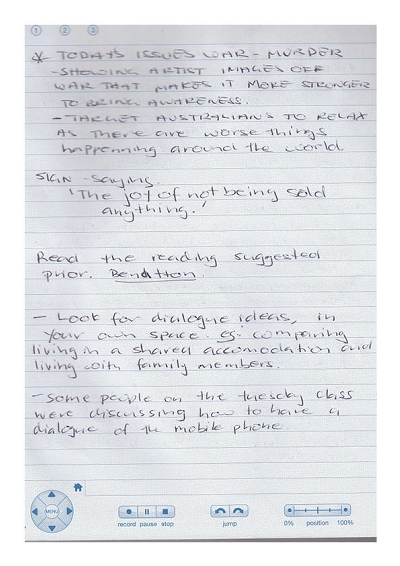 1 2 3
* TODAYS ISSUES WAR - MURDER
- SHOWING ARTIST IMAGES OFF
WAR THAT MAKES IT MORE STRONGER
TO BRING AWARENESS.
- TARGET AUSTRALIAN'S TO RELAX
AS There are worse things
happenning around the world.
SIGN - saying.
'The joy of not being sold
anything.'
Read the reading suggested
prior. Bendtton.
- Look for dialogue ideas, in
your own space. eg: comparing
living in a shared accomodation and
living with family members.
- Some people on the tuesday class
were discussing how to have a
dialogue of the mobile phone.
MENU
record pause stop
jump
0% position 100%